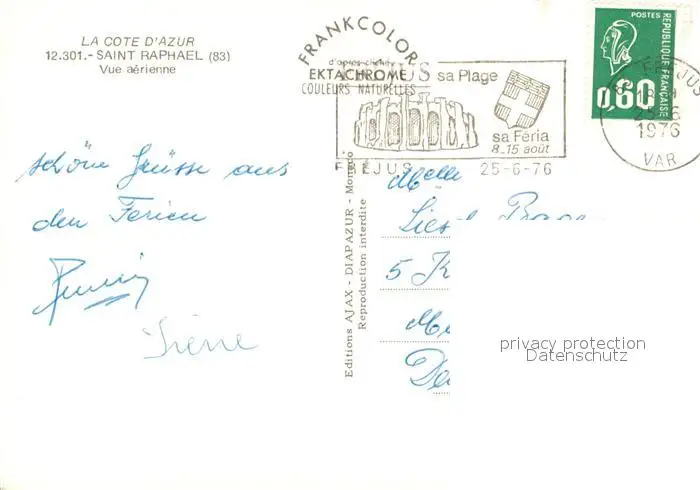 LA COTE D'AZUR
12.301.- SAINT RAPHAEL (83)
Vue aérienne
FRANKCOLOR
d'après clichés
EKTACHROME
COULEURS NATURELLES
sa Plage
sa Féria
8.15 août
FREJUS 25-6-76
POSTES
REPUBLIQUE FRANÇAISE
0,60
FREJUS
25-6
1976
VAR
schöne Grüsse aus
den Ferien
Irène
Editions AJAX - DIAPAZUR - Monaco
Reproduction interdite
Melle
5
privacy protection
Datenschutz